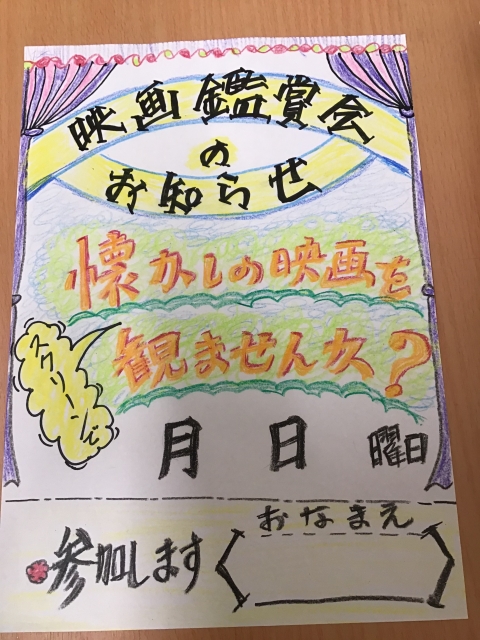 映画鑑賞会
の
お知らせ
懐かしの映画を
スクリーンで
観ませんか?
月 日 曜日
おなまえ
参加します